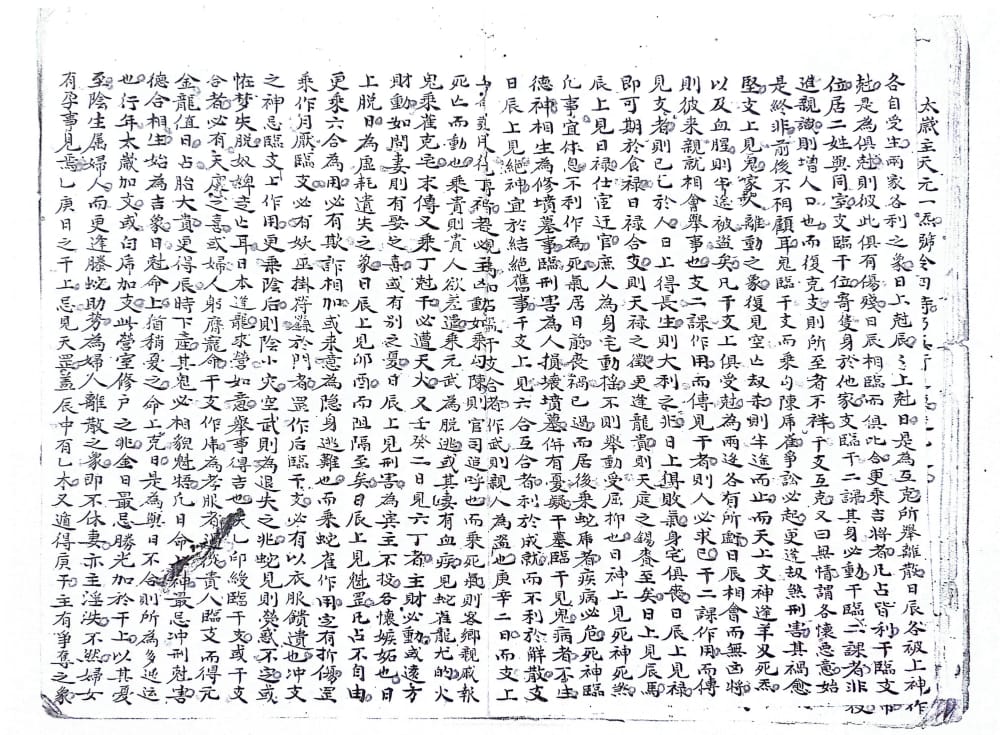 太歲主天元一炁號令四時
各自受生兩家各利之象日上尅辰辰上尅日是為互克所舉離散日辰各被上神作
尅是為俱尅則彼此俱有傷殘日辰相臨而俱比合更乘吉將者凡占皆利干臨支
位居二姓與同室支臨干位寄隻身於他家支臨干二課其身必動干臨二課者非役
進親識則增人口也而復克支則所至者不祥干支互克又曰無情謂各懷惡意始
是終非前後不相顧耳鬼臨干支而乘勾陳虎雀爭訟必起更逢刼煞刑害其禍愈
堅支上見鬼家宅離動之象復見空亡刼煞則半途而止而天上支神逢羊刃死炁
以及血腥則半途被盜矣凡干支上俱受尅為兩逢各有所虧日辰相會而無凶將
則彼來親就相會舉事也支二課作用而傳見干者則人必求己干二課作用而傳
見支者則己亡於人日上得長生則大利之兆日上得敗氣身宅俱喪日辰上見祿
即可期於食祿日祿合支則天祿之徵更逢龍貴則天庭之錫賚至矣日上見辰馬
辰上見日祿仕宦迁官庶人為身宅動搖不則舉動受屈抑也日神上見死神煞
凡事宜休息不利作為死氣居日前喪禍已過而居後乘蛇虎者疾病必危死神臨
德神相生為修墳墓事臨刑害為人損壞墳墓併有憂疑干墓臨干見鬼病者不生
日辰上見絕神宜於結絕舊事干支上見六合互合者利於成就而不利於解散支
作武則親人為盜也庚辛二日而支上
死亡而動也乘貴則貴人欲差遣乘元武為脫逃或其妻有血病見蛇雀龍尤的火
鬼乘雀克宅求傳又乘丁尅干必遭天火又壬癸二日見六丁者主財必動或遠方
財動如問妻則有娶之喜或有別之憂日辰上見刑害為賓主不投各懷嫉妬也日
上脫日為虛耗遺失之象日辰上見卯酉而阻隔至矣日辰上見魁罡凡占不自由
更乘六合為用必有欺詐相加或乘意為隱身逃難也而乘蛇雀作用宅有折傷罡
乘作月厭臨支必有妖巫掛符籙於門者罡作后臨干支必有以衣服饋遺也冲支
之神忌臨支上作用更乘陰后則陰小灾空武則為退失之兆蛇見則熒惑不定或
恠梦失脫奴婢逃亡耳日本逢龍求營如意舉事得吉也乙卯綬臨干支或干支
合者必有天慶之喜或婦人躬膺寵命干支作虎為孝服者後貴人臨支而得元
金龍值日占胎大貴更得辰時下產其鬼必相貌魁梧凡日命神最忌冲刑尅害
德合相生始為吉象日尅命上猶稍憂之命上克日是為與日不合則所為多迍运
也行年太歲加支或白虎加支此營室修户之兆金日最忌勝光加於干上以其憂
至陰生属婦人而更逢螣蛇助勞為婦人離散之象即不休妻亦主淫泆不然婦女
有孕事見焉乙庚日之干上忌見天罡蓋辰中有乙木又遁得庚子主有爭奪之象